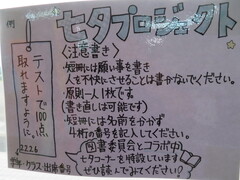 例
テストで100点
取れますように
2226
学年・クラス・出席番号
七夕プロジェクト
〈注意書き〉
・短冊には願い事を書き
人を不快にさせることは書かないでください。
・原則一人1枚です。
(書き直しは可能です)
・短冊には名前をかかず
4桁の番号を記入してください。
図書委員会とコラボ中!
七夕コーナーを特設しています
ぜひ読んでみてください?